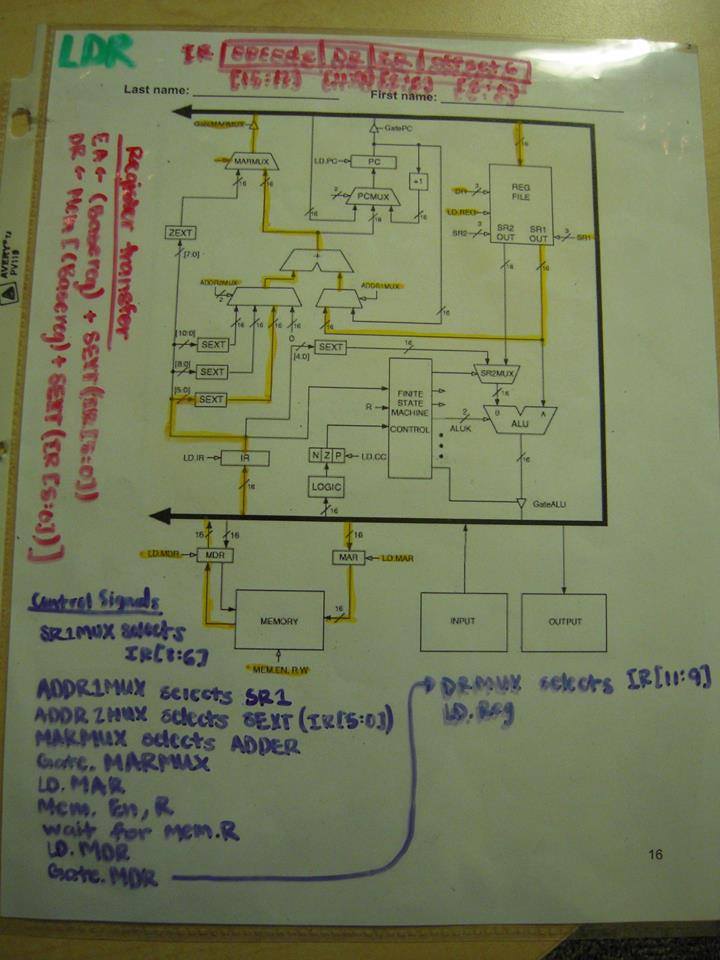 LDR
IR opcode DR SR offset 6
[15:12] [11:9] [8:6] [5:0]
Last name: First name:
AVERY®
PV119
Register transfer
EA ← (Basereg) + SEXT(IR[5:0])
DR ← Mem[(Basereg) + SEXT(IR[5:0])]
GateMARMUX
GatePC
MARMUX
LD.PC
PC
+1
PCMUX
2
16
16
16
16
16
16
REG
FILE
DR
3
LD.REG
SR2
3
SR2
OUT
SR1
OUT
3
SR1
ZEXT
[7:0]
+
16
16
16
ADDR2MUX
2
ADDR1MUX
16
16
16
16
16
16
0
[10:0]
SEXT
[4:0]
SEXT
16
[8:0]
SEXT
[5:0]
SEXT
SR2MUX
16
FINITE
STATE
MACHINE
CONTROL
R
2
ALUK
B
A
ALU
LD.IR
IR
N Z P
LD.CC
LOGIC
16
16
16
GateALU
16
16
16
LD.MDR
MDR
MAR
LD.MAR
MEMORY
16
INPUT
OUTPUT
MEM.EN, R.W
Control Signals
SR1MUX selects
IR[8:6]
ADDR1MUX selects SR1
ADDR2MUX selects SEXT(IR[5:0])
MARMUX selects ADDER
Gate. MARMUX
LD. MAR
Mem. En, R
wait for mem.R
LD. MDR
Gate. MDR
DRMUX selects IR[11:9]
LD. Reg
16